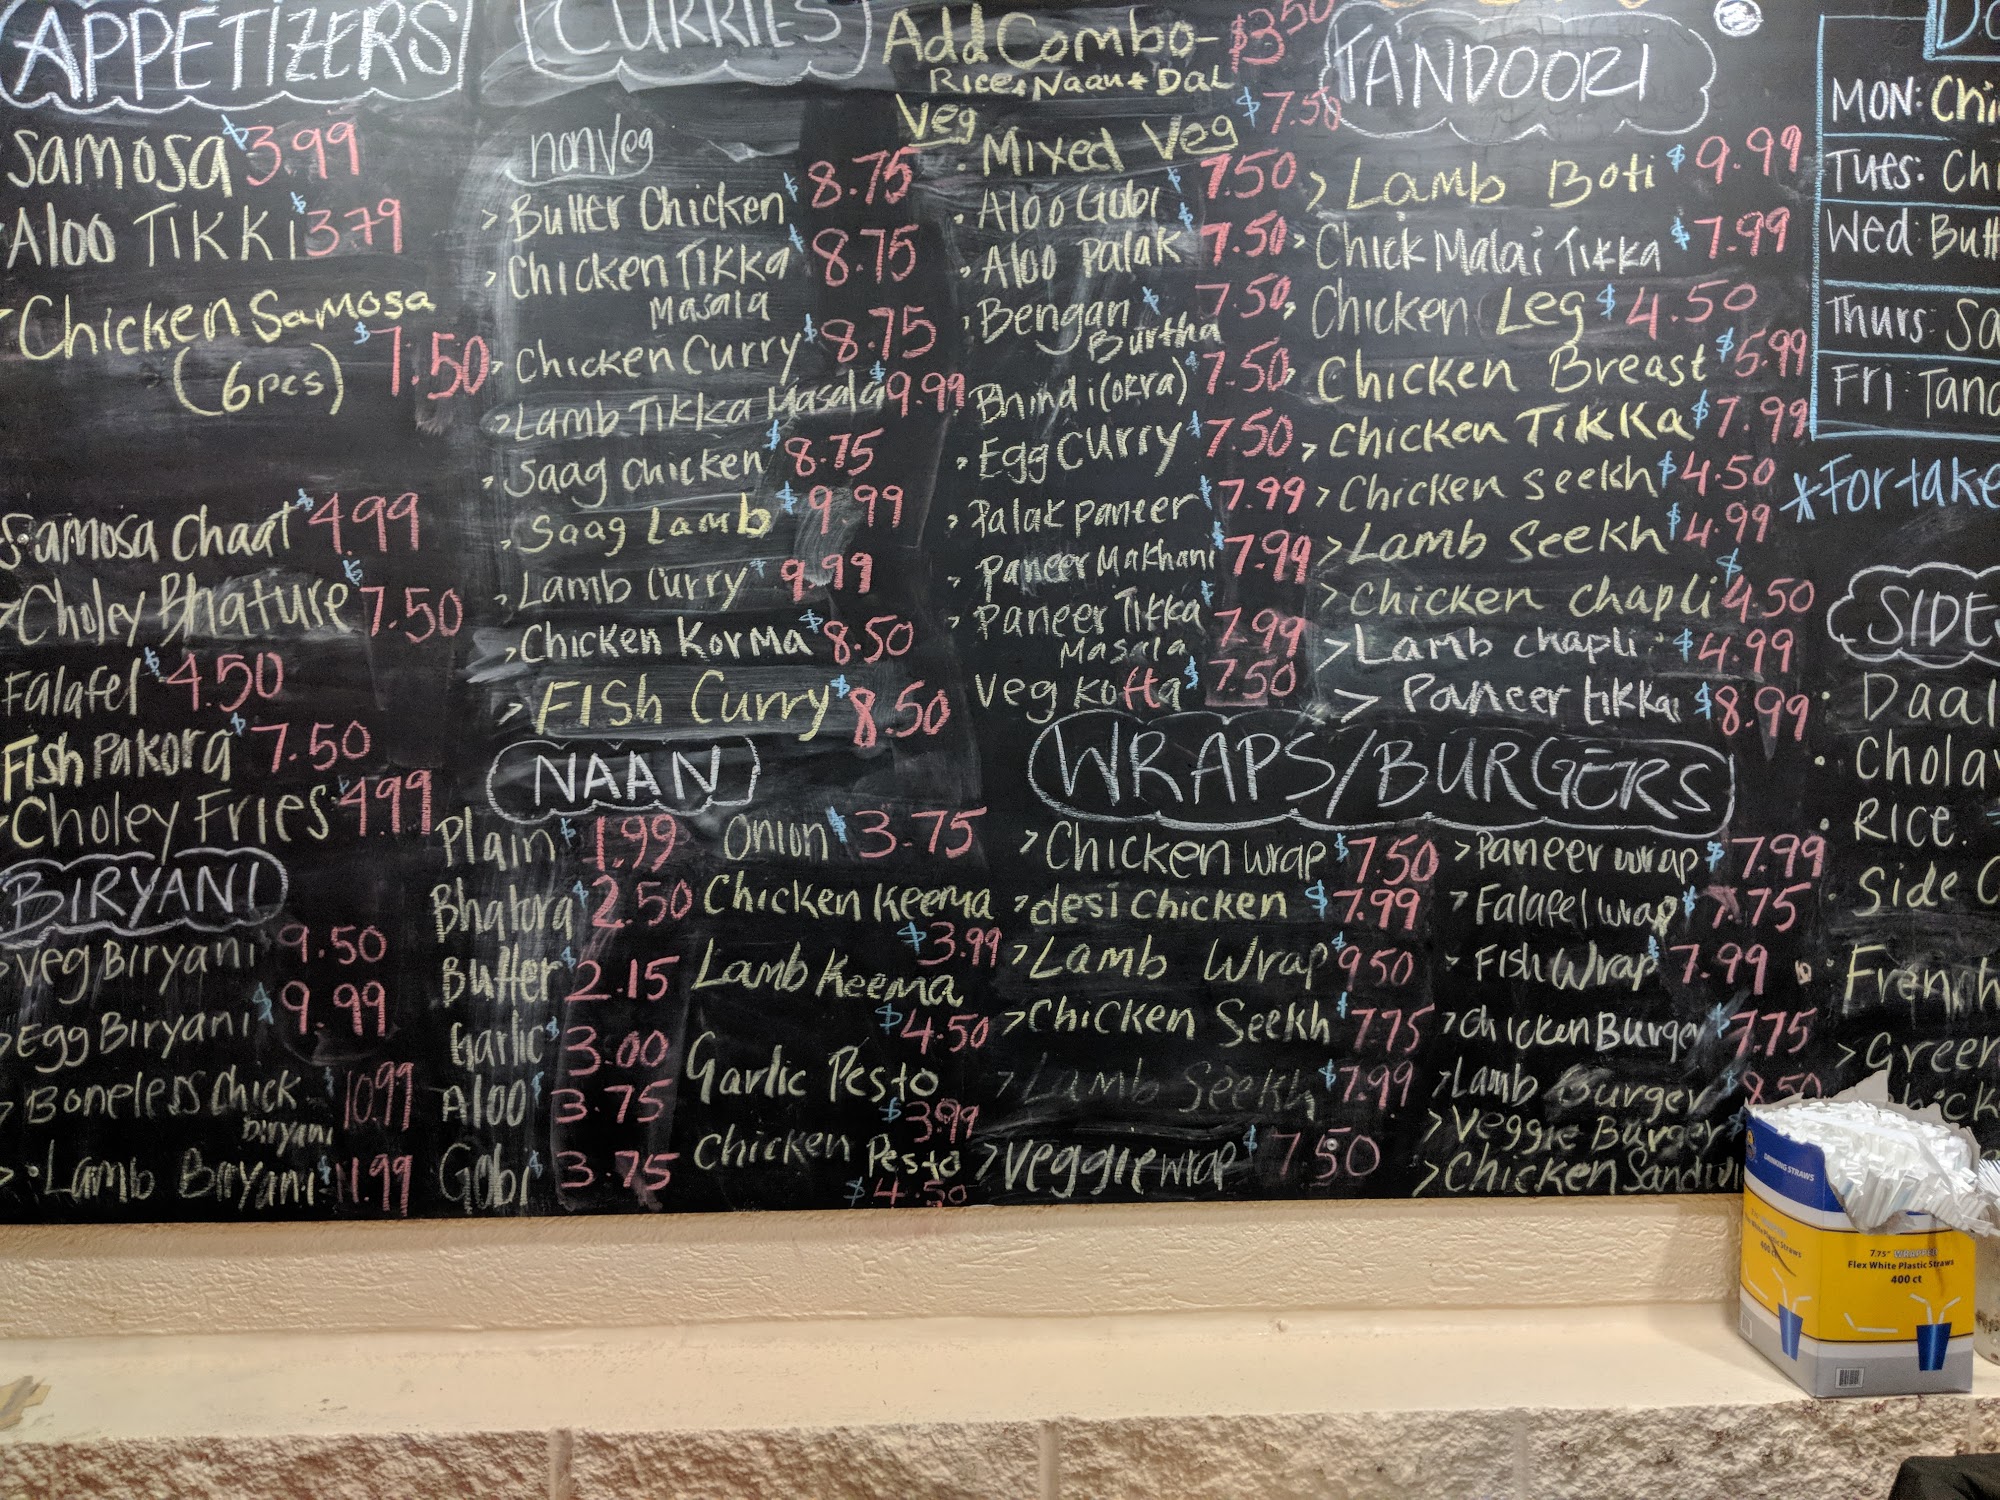 APPETIZERS
Samosa $3.99
Aloo Tikki $3.79
Chicken Samosa
(6pcs) $7.50
Samosa Chaat $4.99
Choley Bhature $7.50
Falafel $4.50
Fish Pakora $7.50
Choley Fries $4.99
BIRYANI
Veg Biryani 9.50
Egg Biryani $9.99
Boneless Chick $10.99
biryani
Lamb Biryani $11.99
CURRIES
nonVeg
> Butter Chicken $8.75
> Chicken Tikka $8.75
Masala
> Chicken Curry $8.75
> Lamb Tikka Masala $9.99
> Saag Chicken $8.75
> Saag Lamb $9.99
> Lamb Curry $9.99
> Chicken Korma $8.50
> Fish Curry $8.50
NAAN
Plain $1.99
Bhatura $2.50
Butter $2.15
Garlic $3.00
Aloo $3.75
Gobi $3.75
Onion $3.75
Chicken Keema
$3.99
Lamb Keema
$4.50
Garlic Pesto
$3.99
Chicken Pesto
$4.50
Add Combo- $3.50
Rice + Naan + Dal
Veg
• Mixed Veg $7.50
• Aloo Gobi $7.50
• Aloo Palak $7.50
• Bengan $7.50
Burtha
Bhindi (okra) $7.50
• Egg Curry $7.50
• Palak paneer $7.99
• Paneer Makhani $7.99
• Paneer Tikka $7.99
Masala
Veg Kofta $7.50
TANDOORI
> Lamb Boti $9.99
> Chick Malai Tikka $7.99
> Chicken Leg $4.50
> Chicken Breast $5.99
> Chicken Tikka $7.99
> Chicken Seekh $4.50
> Lamb Seekh $4.99
> Chicken Chapli $4.50
> Lamb chapli $4.99
> Paneer tikka $8.99
WRAPS/BURGERS
> Chicken wrap $7.50
> desi Chicken $7.99
> Lamb Wrap $9.50
> Chicken Seekh $7.75
> Lamb Seekh $7.99
> Veggie wrap $7.50
> Paneer wrap $7.99
> Falafel wrap $7.75
> Fish Wrap $7.99
> Chicken Burger $7.75
> Lamb Burger $8.50
> Veggie Burger
> Chicken
MON:
Tues:
Wed:
Thurs:
Fri:
*For
• Daal
•
• Rice
• Side
•
>
DRINKING STRAWS
7.75" WRAPPED
Flex White Plastic Straws
400 ct